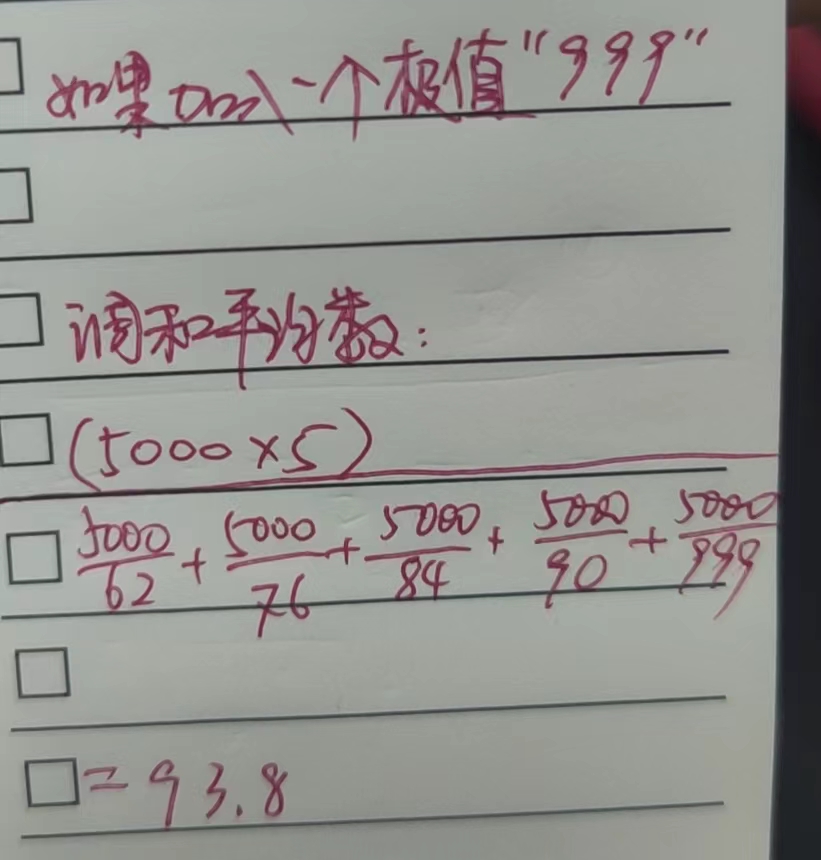 如果加入一个极值“999”
调和平均数：
(5000×5)
5000/62 + 5000/76 + 5000/84 + 5000/90 + 5000/999
=93.8